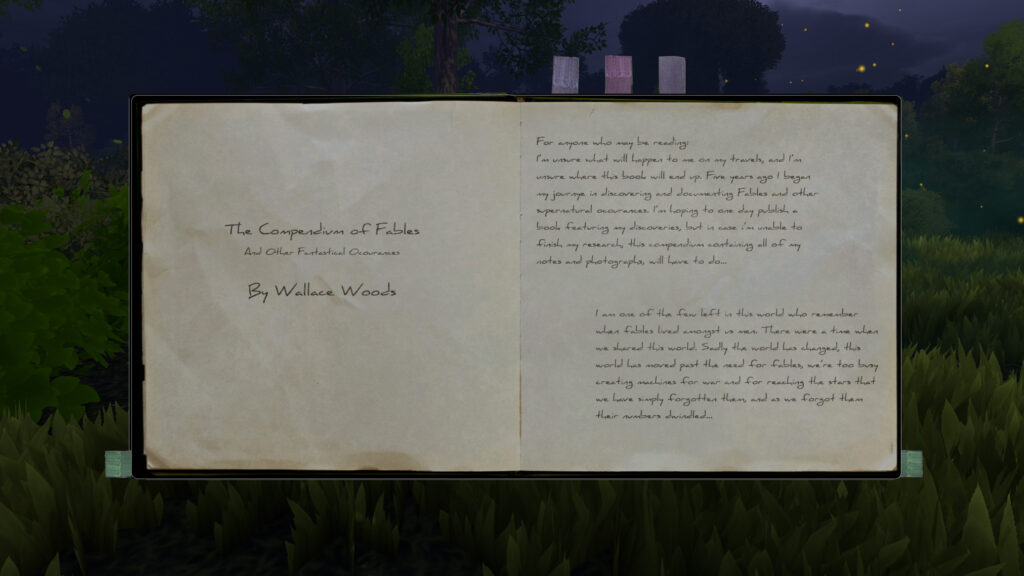 The Compendium of Fables
And Other Fantastical Ocourances
By Wallace Woods
For anyone who may be reading:
I'm unsure what will happen to me on my travels, and I'm
unsure where this book will end up. Five years ago I began
my journye in discovering and documenting Fables and other
supernatural ocourances. I'm hoping to one day publish a
book featuring my discoveries, but in case i'm unable to
finish my research, this compendium containing all of my
notes and photographs, will have to do...
I am one of the few left in this world who remember
when fables lived amongst us men. There were a time when
we shared this world. Sadly the world has changed, this
world has moved past the need for fables, we're too busy
creating machines for war and for reaching the stars that
we have simply forgotten them, and as we forgot them
their numbers dwindled...